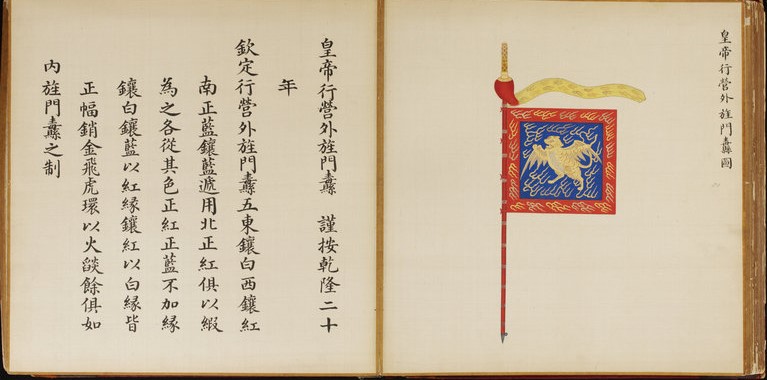 皇帝行營外旌門纛圖
皇帝行營外旌門纛 謹按乾隆二十
年
欽定行營外旌門纛五東鑲白西鑲紅
南正藍鑲藍遞用北正紅俱以緞
為之各從其色正紅正藍不加緣
鑲白鑲藍以紅緣鑲紅以白緣皆
正幅銷金飛虎環以火燄餘俱如
內旌門纛之制